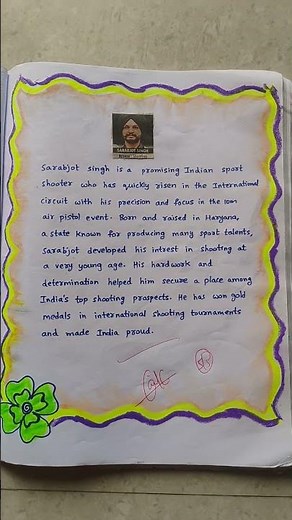 SARABJOT SINGH
Sarabjot singh is a promising Indian sport
shooter who has quickly risen in the International
circuit with his precision and focus in the 10m
air pistol event. Born and raised in Haryana,
a state known for producing many sport talents,
Sarabjot developed his intrest in shooting at
a very young age. His hardwork and
determination helped him secure a place among
India's top shooting prospects. He has won gold
medals in international shooting tournaments
and made India proud.